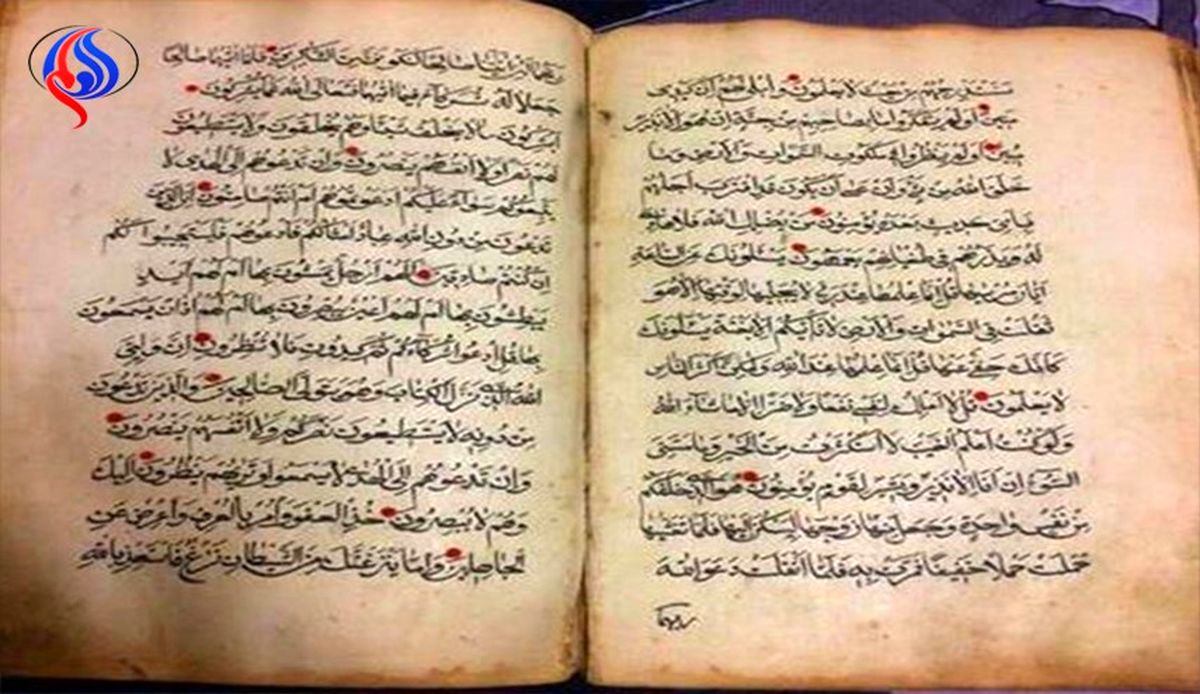 سنستدرجهم من حيث لا يعلمون واملى لهم ان كيدى
متين اولم يتفكروا ما بصاحبهم من جنة ان هو الا نذير
مبين اولم ينظروا فى ملكوت السموات والارض وما
خلق الله من شئ وان عسى ان يكون قد اقترب اجلهم
فبأى حديث بعده يؤمنون من يضلل الله فلا هادى
له ويذرهم فى طغيانهم يعمهون يسئلونك عن الساعة
ايان مرسيها قل انما علمها عند ربى لا يجليها لوقتها الا هو
ثقلت فى السموات والارض لا تأتيكم الا بغتة يسئلونك
كانك حفى عنها قل انما علمها عند الله ولكن اكثر الناس
لا يعلمون قل لا املك لنفسى نفعا ولا ضرا الا ما شاء الله
ولو كنت اعلم الغيب لاستكثرت من الخير وما مسنى
السوء ان انا الا نذير وبشير لقوم يؤمنون هو الذى خلقكم
من نفس واحدة وجعل منها زوجها ليسكن اليها فلما تغشيها
حملت حملا خفيفا فمرت به فلما اثقلت دعوا الله
ربهما
ربهما لئن اتيتنا صالحا لنكونن من الشاكرين فلما اتيهما صالحا
جعلا له شركاء فيما اتيهما فتعالى الله عما يشركون
ايشركون ما لا يخلق شيئا وهم يخلقون ولا يستطيعون
لهم نصرا ولا انفسهم ينصرون وان تدعوهم الى الهدى لا
يتبعوكم سواء عليكم ادعوتموهم ام انتم صامتون ان الذين
تدعون من دون الله عباد امثالكم فادعوهم فليستجيبوا لكم
ان كنتم صادقين الهم ارجل يمشون بها ام لهم ايد
يبطشون بها ام لهم اعين يبصرون بها ام لهم اذان يسمعون
بها قل ادعوا شركاءكم ثم كيدون فلا تنظرون ان وليى
الله الذى نزل الكتاب وهو يتولى الصالحين والذين تدعون
من دونه لا يستطيعون نصركم ولا انفسهم ينصرون
وان تدعوهم الى الهدى لا يسمعوا وتريهم ينظرون اليك
وهم لا يبصرون خذ العفو وأمر بالعرف واعرض عن
الجاهلين واما ينزغنك من الشيطان نزغ فاستعذ بالله